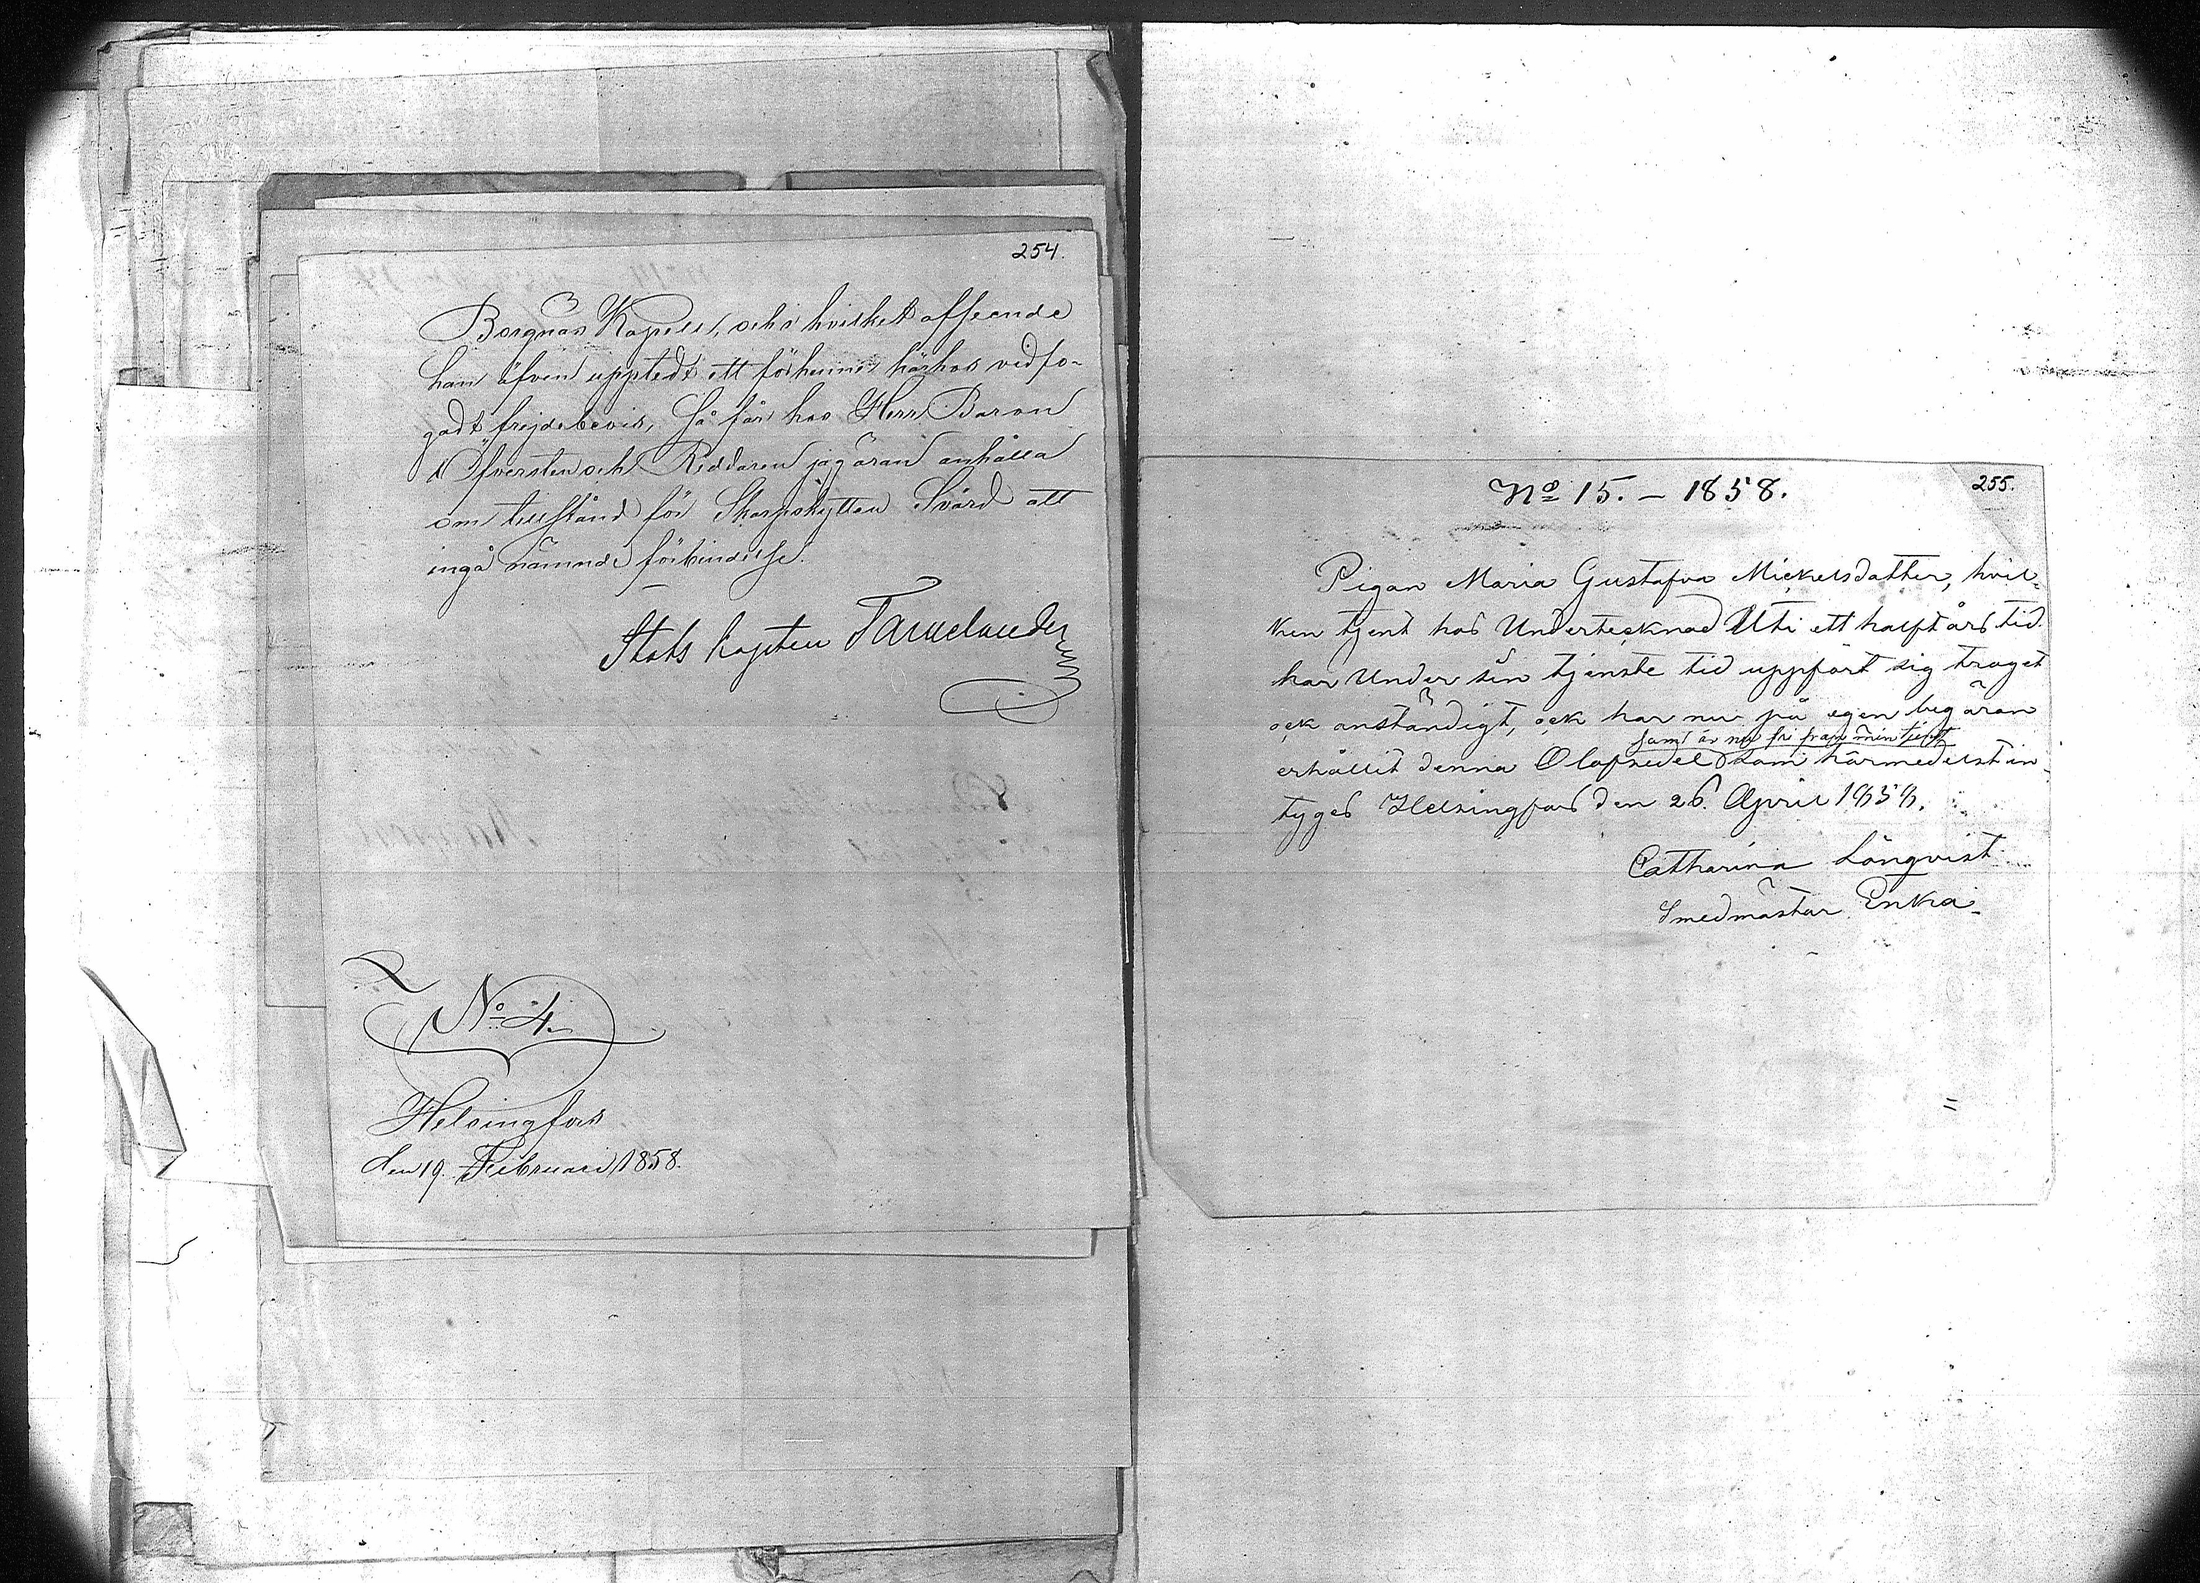 254.
Borgnäs Kapell, och i hvilket afseende
han äfven upptedt ett förhenne härhos vidfo-
gadt frejdebevis, Så får hos Herr Baron
Öfversten och Riddaren jag äran anhålla
om tillstånd för Skarpskytten Svärd att
ingå nämnde förbindelse.
Stabs Kapten
No 4.
Helsingfors
den 19. Februari 1858.
No 15. - 1858.
255.
Pigan Maria Gustafva Mickelsdatter, hvil-
ken tjent hos Undertecknad Uti ett halft års tid
har Under sin tjenste tid uppfört sig troget
ock anständigt, ock har nu på egen begäran
samt är nu fri från min tjenst
erhållit denna Olofsedel som härmedelst in-
tyges Helsingfors den 26. April 1858.
Catharina Lönqvist
Smedmästar Enka